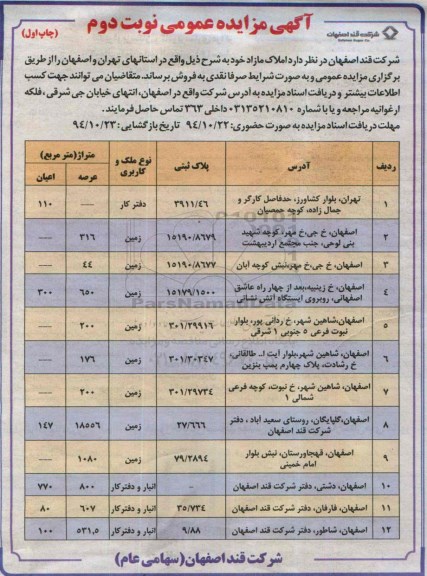 آگهی مزایده عمومی نوبت دوم
(چاپ اول)
شرکت قند اصفهان
شرکت قند اصفهان در نظر دارد املاک مازاد خود به شرح ذیل واقع در استانهای تهران و اصفهان را از طریق
برگزاری مزایده عمومی و به صورت شرایط صرفا نقدی به فروش برساند. متقاضیان می توانند جهت کسب
اطلاعات بیشتر و دریافت اسناد مزایده به آدرس شرکت واقع در اصفهان، انتهای خیابان جی شرقی، فلکه
ارغوانیه مراجعه و یا با شماره ۰۳۱۳۵۲۱۰۸۱۰ داخلی ۳۶۳ تماس حاصل فرمایند.
مهلت دریافت اسناد مزایده به صورت حضوری: ۹۴/۱۰/۲۲ تاریخ بازگشایی: ۹۴/۱۰/۲۳
ردیف آدرس پلاک ثبتی نوع ملک و کاربری متراژ(متر مربع) عرصه اعیان
۱ تهران، بلوار کشاورز، حدفاصل کارگر و جمال زاده، کوچه جمعصیان ۳۹۱۱/۴۶ دفتر کار —— ۱۱۰
۲ اصفهان، خ جی، خ مهر، کوچه شهید بنی لوحی، جنب مجتمع اردیبهشت ۱۵۱۹۰/۸۶۷۹ زمین ۳۱۶ ——
۳ اصفهان، خ جی، خ مهر، نبش کوچه آبان ۱۵۱۹۰/۸۶۷۷ زمین ۴۴ ——
۴ اصفهان، خ زینبیه، بعد از چهار راه عاشق اصفهانی، روبروی ایستگاه آتش نشانی ۱۵۱۷۹/۱۵۰۰ زمین ۶۵۰ ۳۰۰
۵ اصفهان، شاهین شهر، خ ردانی پور، بلوار نبوت فرعی ۵ جنوبی ۱ شرقی ۳۰۱/۲۹۹۱۶ زمین ۲۰۰ ——
۶ اصفهان، شاهین شهر، بلوار آیت ا... طالقانی، خ رشادت، پلاک چهارم پمپ بنزین ۳۰۱/۳۰۳۴۷ زمین ۱۷۶ ——
۷ اصفهان، شاهین شهر، خ نبوت، کوچه فرعی شمالی ۱ ۳۰۱/۲۹۷۳۴ زمین ۲۰۰ ——
۸ اصفهان، گلپایگان، روستای سعید آباد، دفتر شرکت قند اصفهان ۲۷/۶۶۶ زمین ۱۸۵۵۶ ۱۴۷
۹ اصفهان، قهجاورستان، نبش بلوار امام خمینی ۷۹/۲۸۹۴ زمین ۱۰۸۰ ——
۱۰ اصفهان، دشتی، دفتر شرکت قند اصفهان - انبار و دفتر کار ۸۰۰ ۷۷۰
۱۱ اصفهان، فارفان، دفتر شرکت قند اصفهان ۳۵/۷۳۴ انبار و دفتر کار ۶۰۷ ۸۰
۱۲ اصفهان، شاطور، دفتر شرکت قند اصفهان ۹/۸۸ انبار و دفتر کار ۵۳۱,۵ ۱۰۰
شرکت قند اصفهان (سهامی عام)